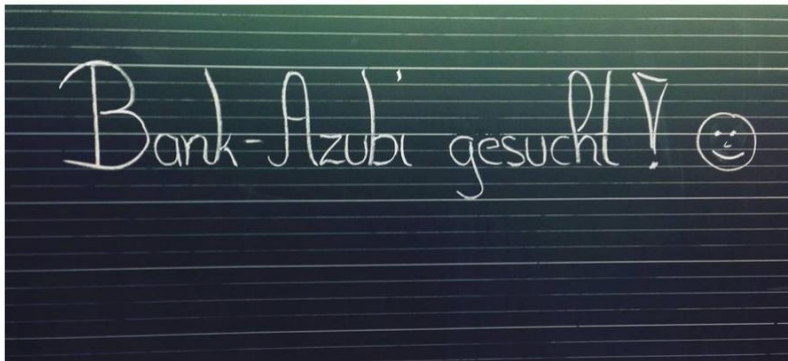 Bank-Azubi gesucht! ☺